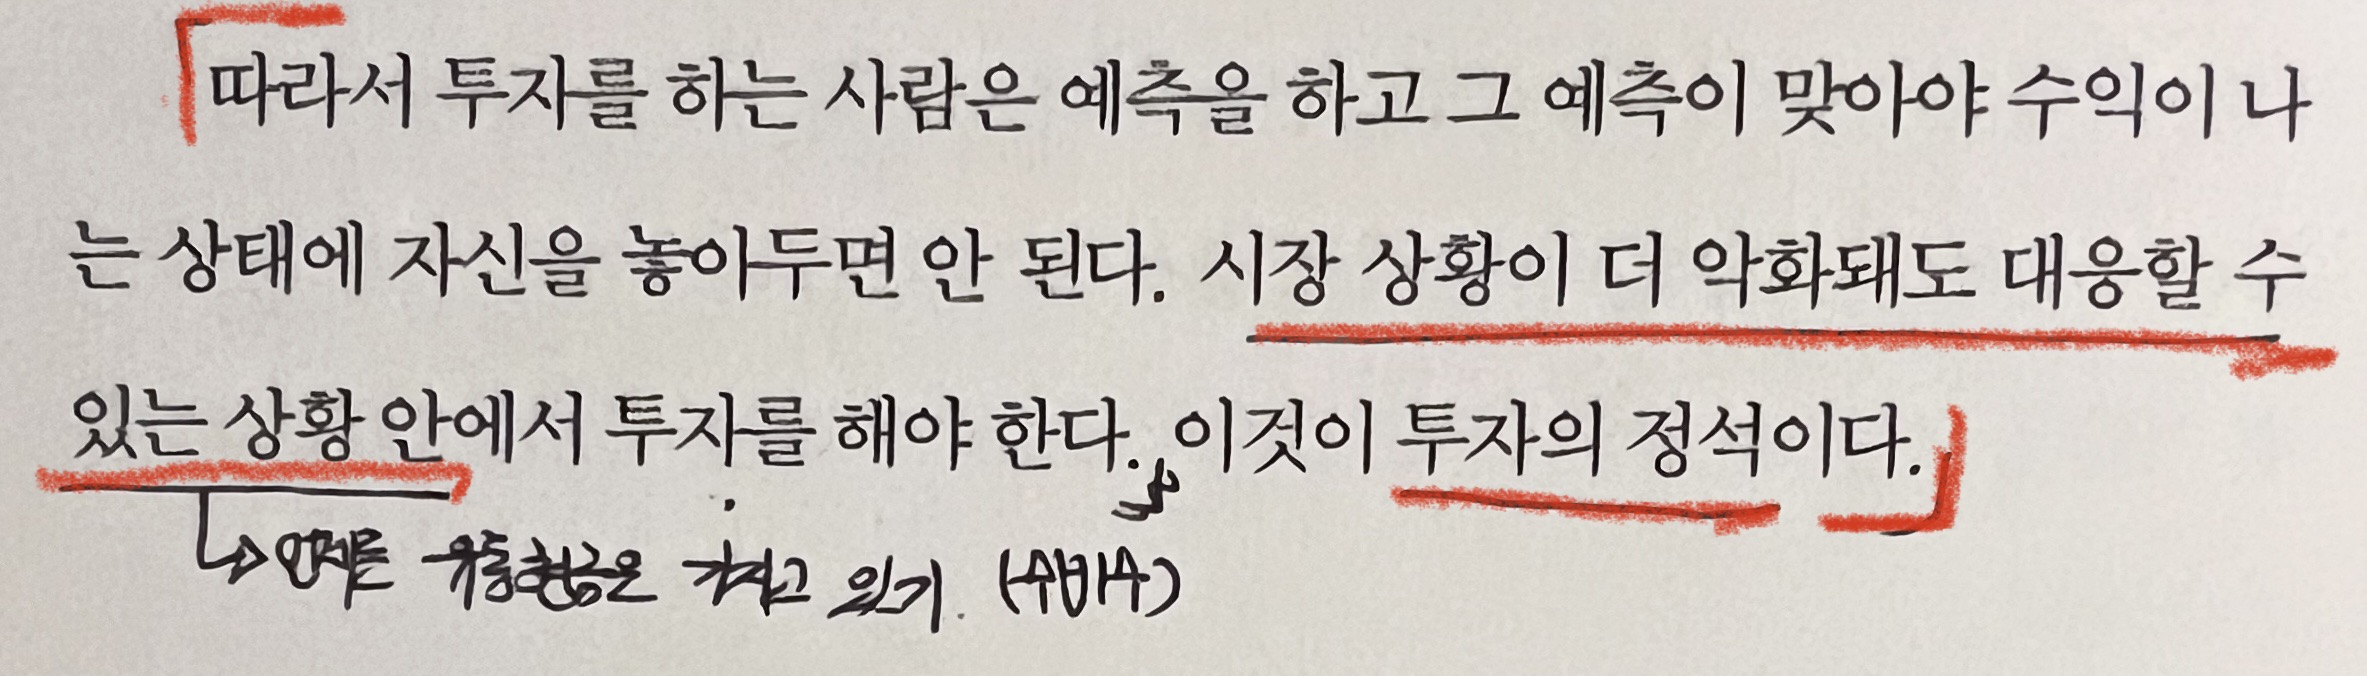 따라서 투자를 하는 사람은 예측을 하고 그 예측이 맞아야 수익이 나
는 상태에 자신을 놓아두면 안 된다. 시장 상황이 더 악화돼도 대응할 수
있는 상황 안에서 투자를 해야 한다. 이것이 투자의 정석이다.
→ 언제든 유동현금은 가지고 있기. (수비수)